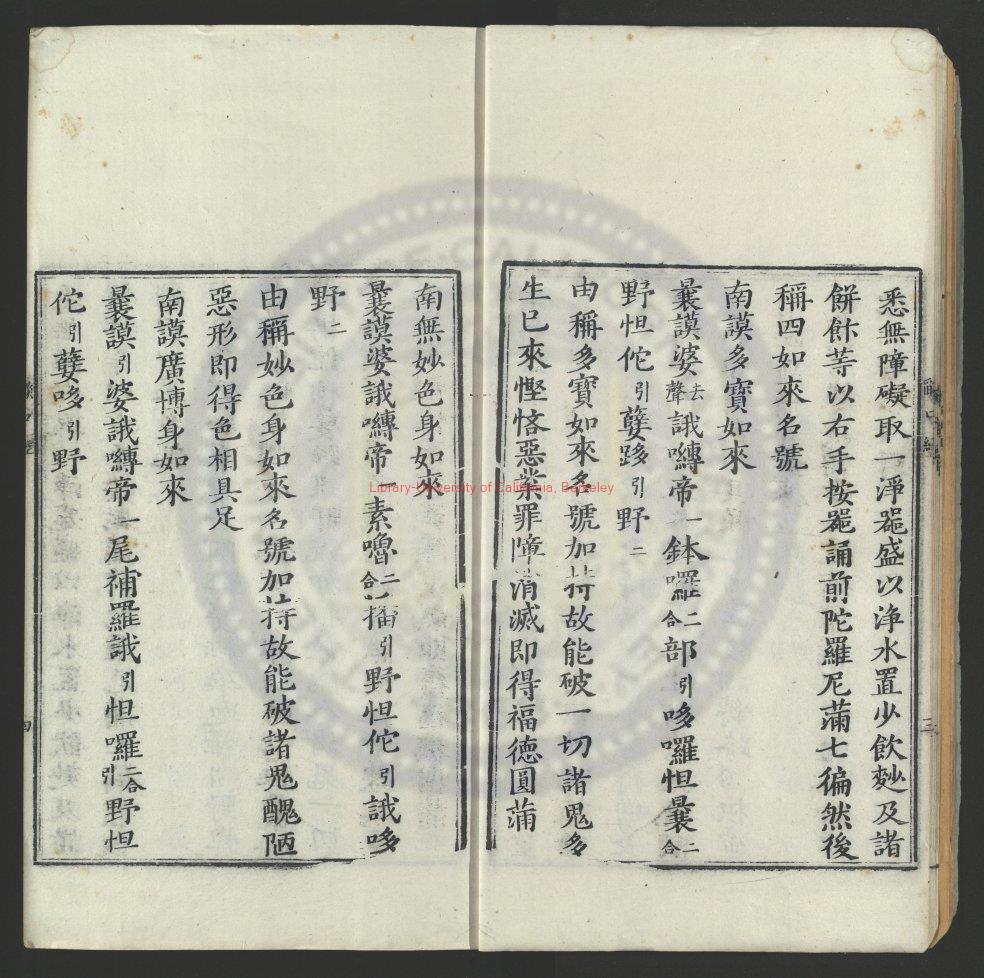 悉無障礙取一淨噐盛以浄水置少飲麨及諸
餅飰等以右手按噐誦前陀羅尼滿七徧然後
稱四如來名號
南謨多寶如來
曩謨婆去聲誐嚩帝一鉢囉二合部引哆囉怛曩二合
野怛佗引孽跢引野二
由稱多寶如來名號加持故能破一切諸鬼多
生已來慳悋惡業罪障消滅即得福德圓滿
南無妙色身如來
曩謨婆誐嚩帝一素嚕二合播引野怛佗引誐哆
野二
由稱妙色身如來名號加持故能破諸鬼醜陋
惡形即得色相具足
南謨廣博身如來
曩謨引婆誐嚩帝一尾補羅誐引怛囉二合引野怛
佗引孽哆引野
三
四
Library University of California, Berkeley